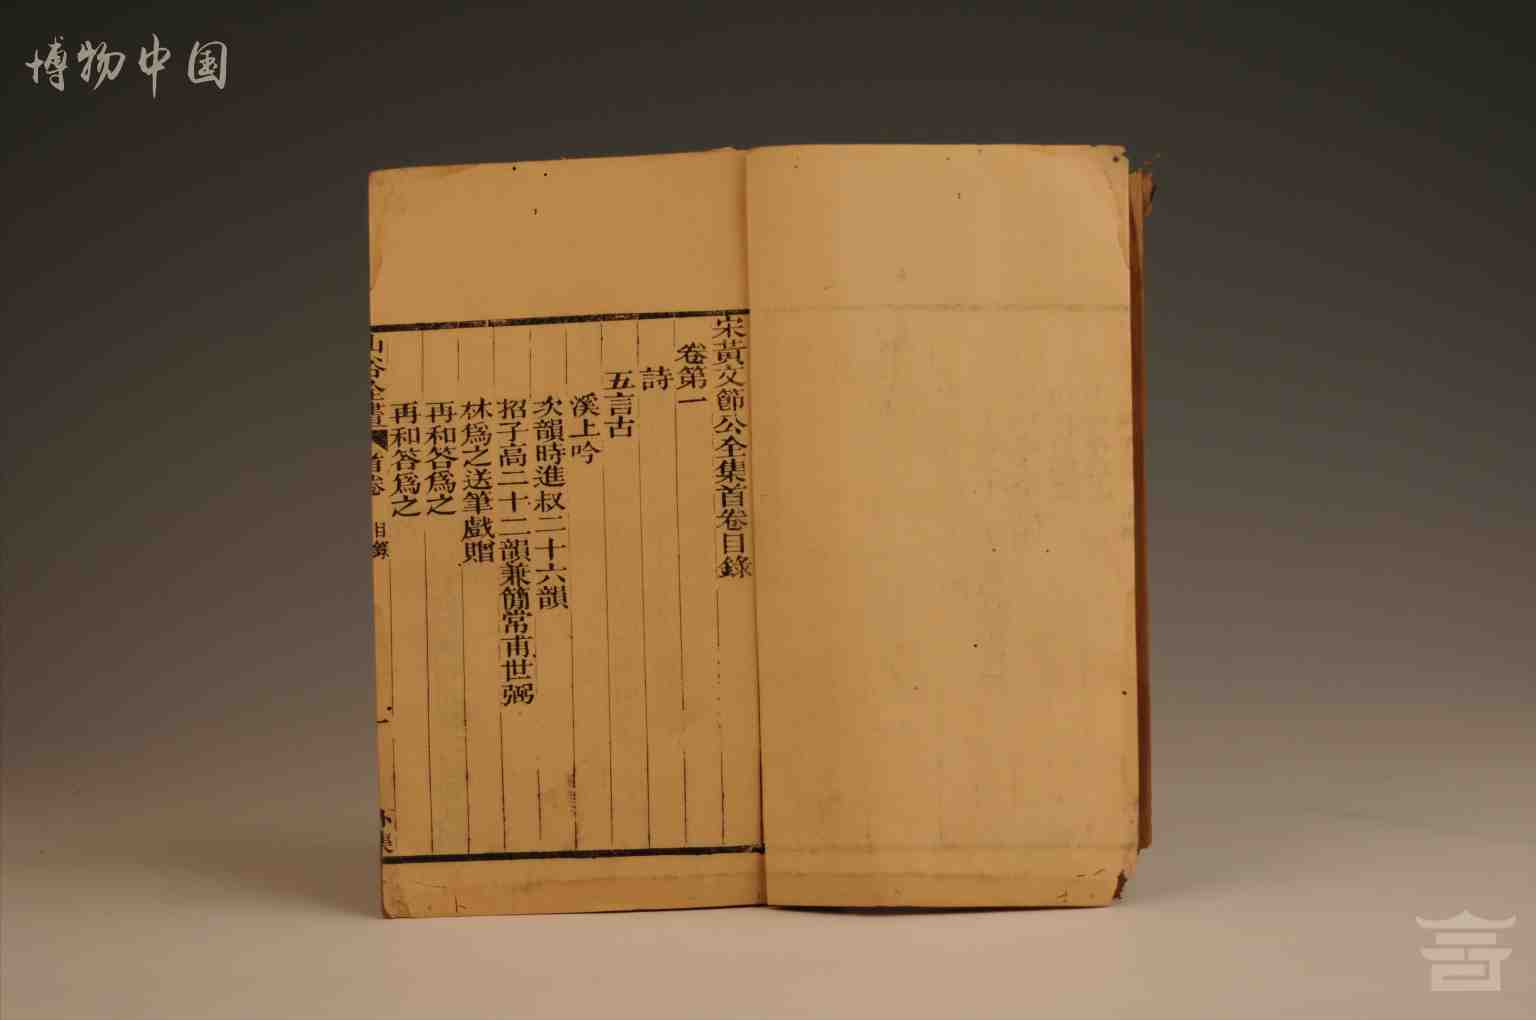 博物中国
宋黃文節公全集首卷目錄
卷第一
詩
五言古
溪上吟
次韻時進叔二十六韻
招子高二十二韻兼簡常甫世弼
林爲之送筆戲贈
再和答爲之
再和答爲之
山谷全書 首卷 目錄 一